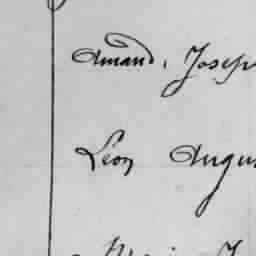 Amand, Joseph
Léon Augus